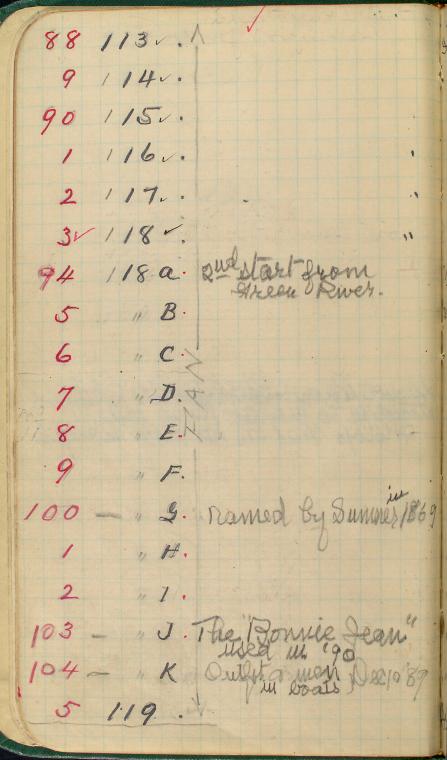 88 113 ✓.
9 114 ✓.
90 115 ✓.
1 116 ✓.
2 117 ✓.
3 ✓ 118 ✓.
94 118 a. 2nd start from
Green River.
5 " B.
6 " C.
7 " D.
8 " E.
9 " F.
100 — " G. named by Sumner in 1869
1 " H.
2 " I.
103 — " J. The "Bonnie Jean"
used in '90
104 — " K Outfit & men Dec 10 '89
in boats
5 119.
PAN